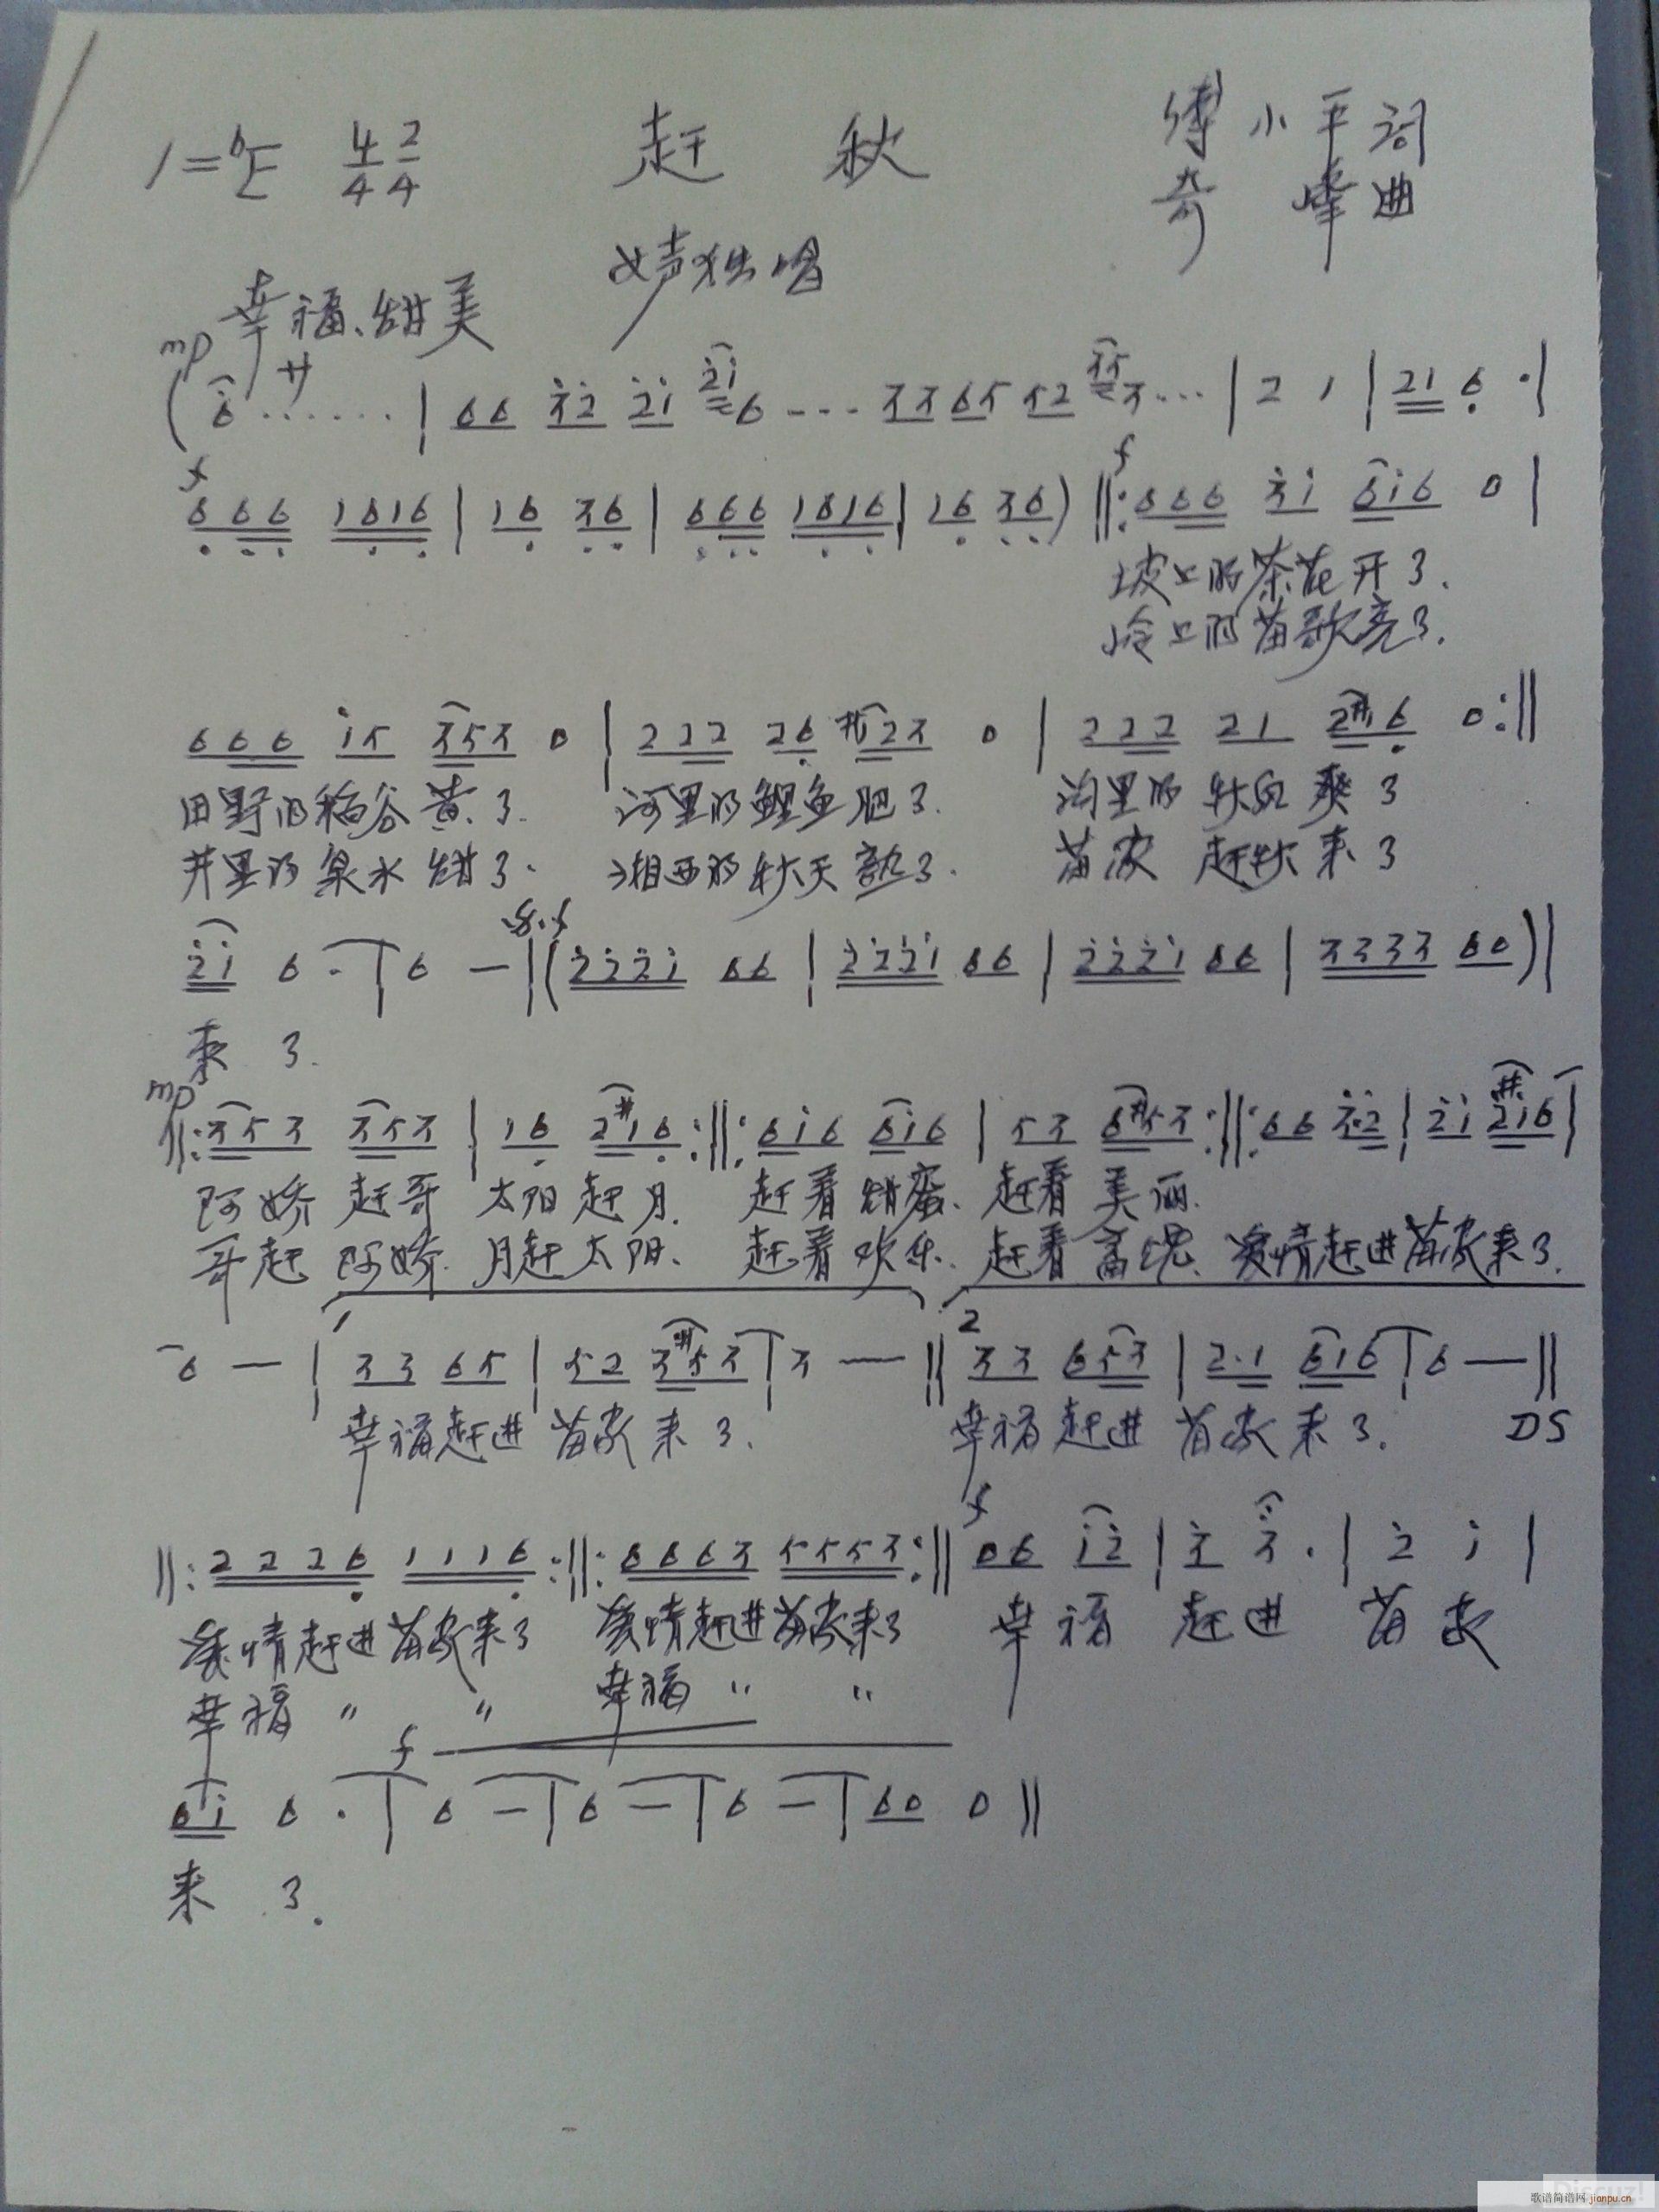 1=♭E 4/4 2/4 赶 秋 傅小平词
奇 峰曲
女声独唱
mp 幸福、甜美
(6 ······ | 66 32 21 216 --- 3365 52 353 ··· | 2 1 | 21 6 · |
f f
666 1616 | 16 36 | 666 1616 | 16 36) ‖: 666 31 616 0 |
坡上的茶花开了.
岭上的苗歌亮了.
666 15 353 0 | 222 26 #123 0 | 222 21 2#16 0 :‖
田野的稻谷黄了. 河里的鲤鱼肥了. 沟里的秋风爽了
井里的泉水甜了. 湘西的秋天熟了. 苗家 赶秋来了
21 6 · | 6 — ‖ (2221 66 | 2221 66 | 2221 66 | 3333 60) ‖
来 了.
mp
‖: 353 353 | 16 2#16 :‖: 616 616 | 53 6#53 :‖: 66 3·2 | 21 2#16 |
阿娇 赶哥 太阳赶月. 赶着甜蜜、赶着美丽.
哥赶 阿娇. 月赶太阳、 赶着欢乐. 赶着 爱情赶进苗家来了.
6 — | 33 65 | 52 3#53 | 3 — ‖ 33 653 | 2·1 616 | 6 — ‖
幸福赶进 苗家来了. 幸福赶进 苗家来了. DS
f
‖: 2226 1116 :‖: 6663 5553 :‖ 06 12 | 3 3 · | 2 1 |
爱情赶进苗家来了 爱情赶进苗家来了 幸福 赶进 苗家
幸福 〃 〃 幸福 〃 〃
f
61 6 · | 6 — | 6 — | 6 — | 60 0 ‖
来 了.
Discuz!
歌谱简谱网 jianpu.cn